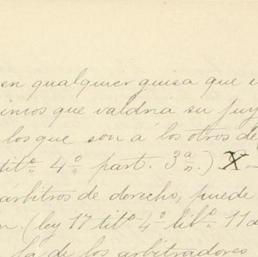 en qualquier guisa que
imos que valdria su juy
los que son á los otros de
titº 4º part. 3ª
árbitros de derecho, puede
n. (ley 17 titº 4º libº 11
la de los arbitradores